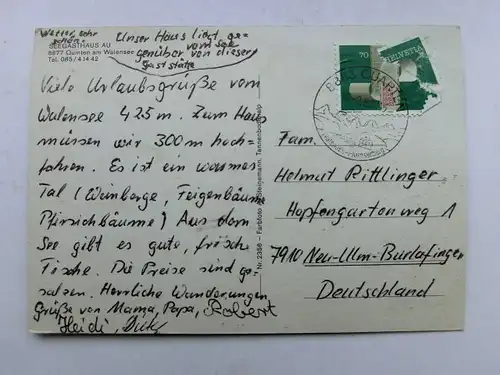 Wetter sehr
schön.
SEEGASTHAUS AU
8877 Quinten am Walensee
Tel. 085/4 14 42
Unser Haus liegt ge-
genüber vom See
von dieser
Gaststätte
Viele Urlaubsgrüße vom
Walensee 425 m. Zum Haus
müssen wir 300 m hoch-
fahren. Es ist ein warmes
Tal (Weinberge, Feigenbäume
Pfirsichbäume) Aus dem
See gibt es gute, frische
Fische. Die Preise sind ge-
salzen. Herrliche Wanderungen
Grüße von Mama, Papa, Robert
Heidi, Dick
Nr. 2398 - Farbfoto Steigemann, Tannenbodenalp
70
HELVETIA
QUARTEN
Fam.
Helmut Rittlinger
Hopfengartenweg 1
7910 Neu-Ulm-Burlafingen
Deutschland